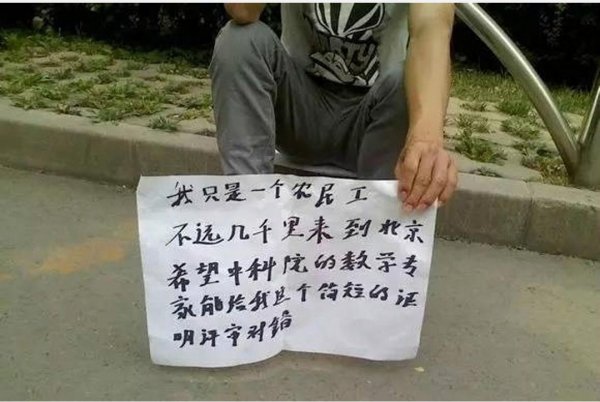 我只是一个农民工
不远几千里来到北京
希望中科院的数学专
家能给我这个简短的证
明评审对错